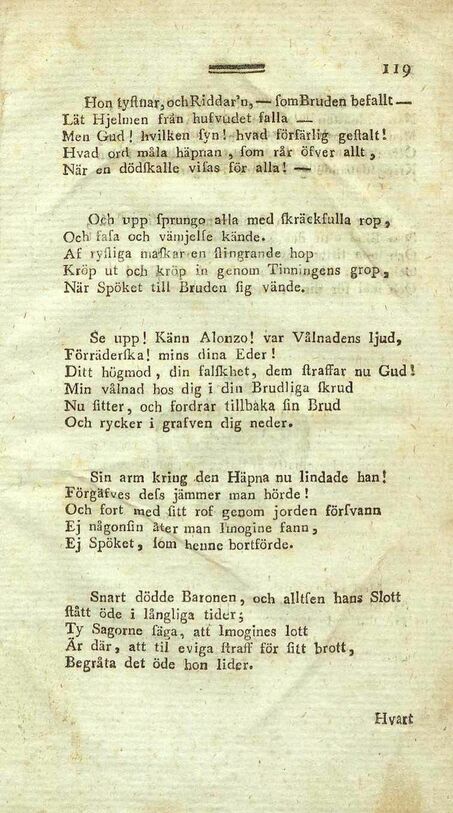 119
Hon tyſtnar, och Riddar'n, — ſom Bruden befallt —
Lät Hjelmen från hufvudet falla —
Men Gud! hvilken ſyn! hvad förfärlig geſtalt!
Hvad ord måla häpnan, ſom rår öfver allt,
När en dödſkalle viſas för alla! —
Och upp ſprungo alla med ſkräckfulla rop,
Och faſa och vämjelſe kände.
Af ryſliga maſkar en ſlingrande hop
Kröp ut och kröp in genom Tinningens grop,
När Spöket till Bruden ſig vände.
Se upp! Känn Alonzo! var Vålnadens ljud,
Förräderſka! mins dina Eder!
Ditt högmod, din falſkhet, dem ſtraffar nu Gud!
Min vålnad hos dig i din Brudliga ſkrud
Nu ſitter, och fordrar tillbaka ſin Brud
Och rycker i grafven dig neder.
Sin arm kring den Häpna nu lindade han!
Förgäfves deſs jämmer man hörde!
Och fort med ſitt rof genom jorden förſvann
Ej någonſin åter man Imogine fann,
Ej Spöket, ſom henne bortförde.
Snart dödde Baronen, och alltſen hans Slott
ſtått öde i långliga tider;
Ty Sagorne ſäga, att Imogines lott
Är där, att til eviga ſtraff för ſitt brott,
Begråta det öde hon lider.
Hvart